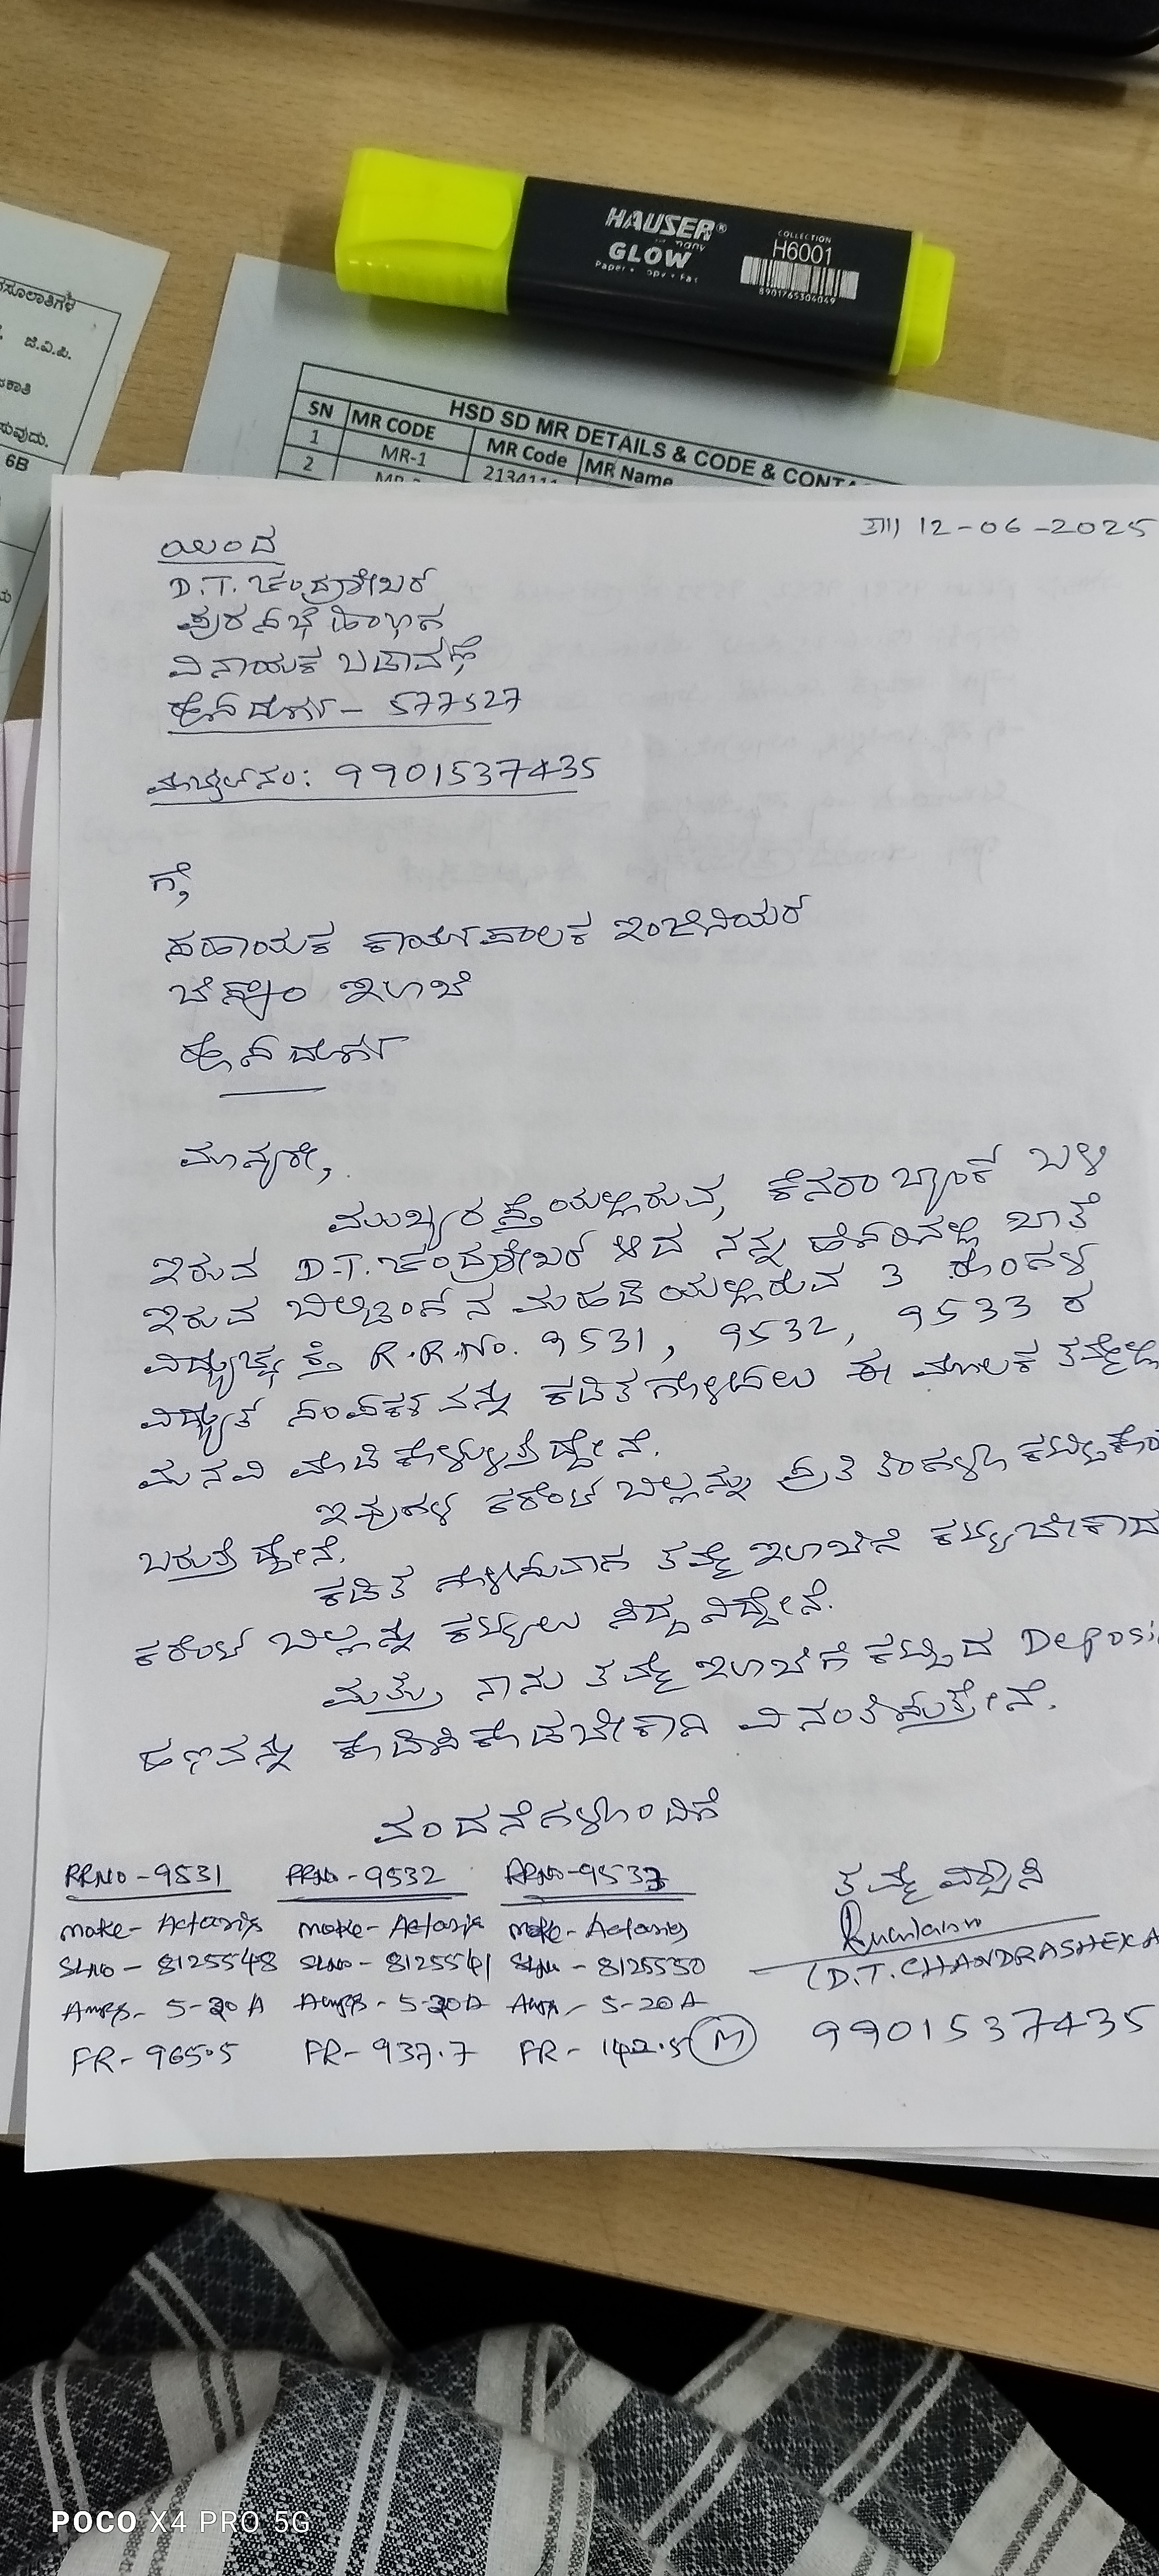 HAUSER®
Germany
GLOW
COLLECTION
H6001
8901765304049
ಜಿ.ವಿ.ಪಿ.
ಸುವುದು.
6B
HSD SD MR DETAILS & CODE & CONTA
SN MR CODE MR Code MR Name
1 MR-1 2134111
2
ದಿ|| 12-06-2025
ಯಿಂದ
D.T. ಚಂದ್ರಶೇಖರ್
ಪುರಸಭೆ ಹಿಂಭಾಗ
ವಿನಾಯಕ ಬಡಾವಣೆ
ಹೊಸದುರ್ಗ - 577527
ಮೊಬೈಲ್ ನಂ: 9901537435
ಗೆ,
ಸಹಾಯಕ ಕಾರ್ಯಪಾಲಕ ಇಂಜಿನಿಯರ್
ಬೆಸ್ಕಾಂ ಇಲಾಖೆ
ಹೊಸದುರ್ಗ
ಮಾನ್ಯರೇ,
ಮುಖ್ಯರಸ್ತೆಯಲ್ಲಿರುವ, ಕೆನರಾ ಬ್ಯಾಂಕ್ ಬಳಿ
ಇರುವ D.T. ಚಂದ್ರಶೇಖರ್ ಆದ ನನ್ನ ಹೆಸರಿನಲ್ಲಿ ಖಾತೆ
ಇರುವ ಬಿಲ್ಡಿಂಗ್ ನ ಮಹಡಿಯಲ್ಲಿರುವ 3 ರೂಂಗಳ
ವಿದ್ಯುಚ್ಛಕ್ತಿ R.R.No. 9531, 9532, 9533 ರ
ವಿದ್ಯುತ್ ಸಂಪರ್ಕವನ್ನು ಕಡಿತಗೊಳಿಸಲು ಈ ಮೂಲಕ ತಮ್ಮಲ್ಲಿ
ಮನವಿ ಮಾಡಿಕೊಳ್ಳುತ್ತಿದ್ದೇನೆ.
ಇವುಗಳ ಕರೆಂಟ್ ಬಿಲ್ಲನ್ನು ಪ್ರತಿ ತಿಂಗಳೂ ಕಟ್ಟಿಕೊಂ
ಬರುತ್ತಿದ್ದೇನೆ.
ಕಡಿತ ಗೊಳಿಸುವಾಗ ತಮ್ಮ ಇಲಾಖೆಗೆ ಕಟ್ಟಬೇಕಾದ
ಕರೆಂಟ್ ಬಿಲ್ಲನ್ನು ಕಟ್ಟಲು ಸಿದ್ದನಿದ್ದೇನೆ.
ಮತ್ತು ನಾನು ತಮ್ಮ ಇಲಾಖೆಗೆ ಕಟ್ಟಿದ Deposi
ಹಣವನ್ನು ಕೊಡಿಸಿಕೊಡಬೇಕಾಗಿ ವಿನಂತಿಸುತ್ತೇನೆ.
ವಂದನೆಗಳೊಂದಿಗೆ
ತಮ್ಮ ವಿಶ್ವಾಸಿ
(D.T. CHANDRASHEKA
9901537435
RRNO - 9531 RRNo - 9532 RRNo - 9533
make - Actaris make - Actaris make - Actaris
SLNO - 8125548 SLNO - 8125541 SLNo - 8125550
Amps - 5-20 A Amps - 5-20A Amps - 5-20 A
FR - 965.5 FR - 937.7 FR - 142.5 M
POCO X4 PRO 5G